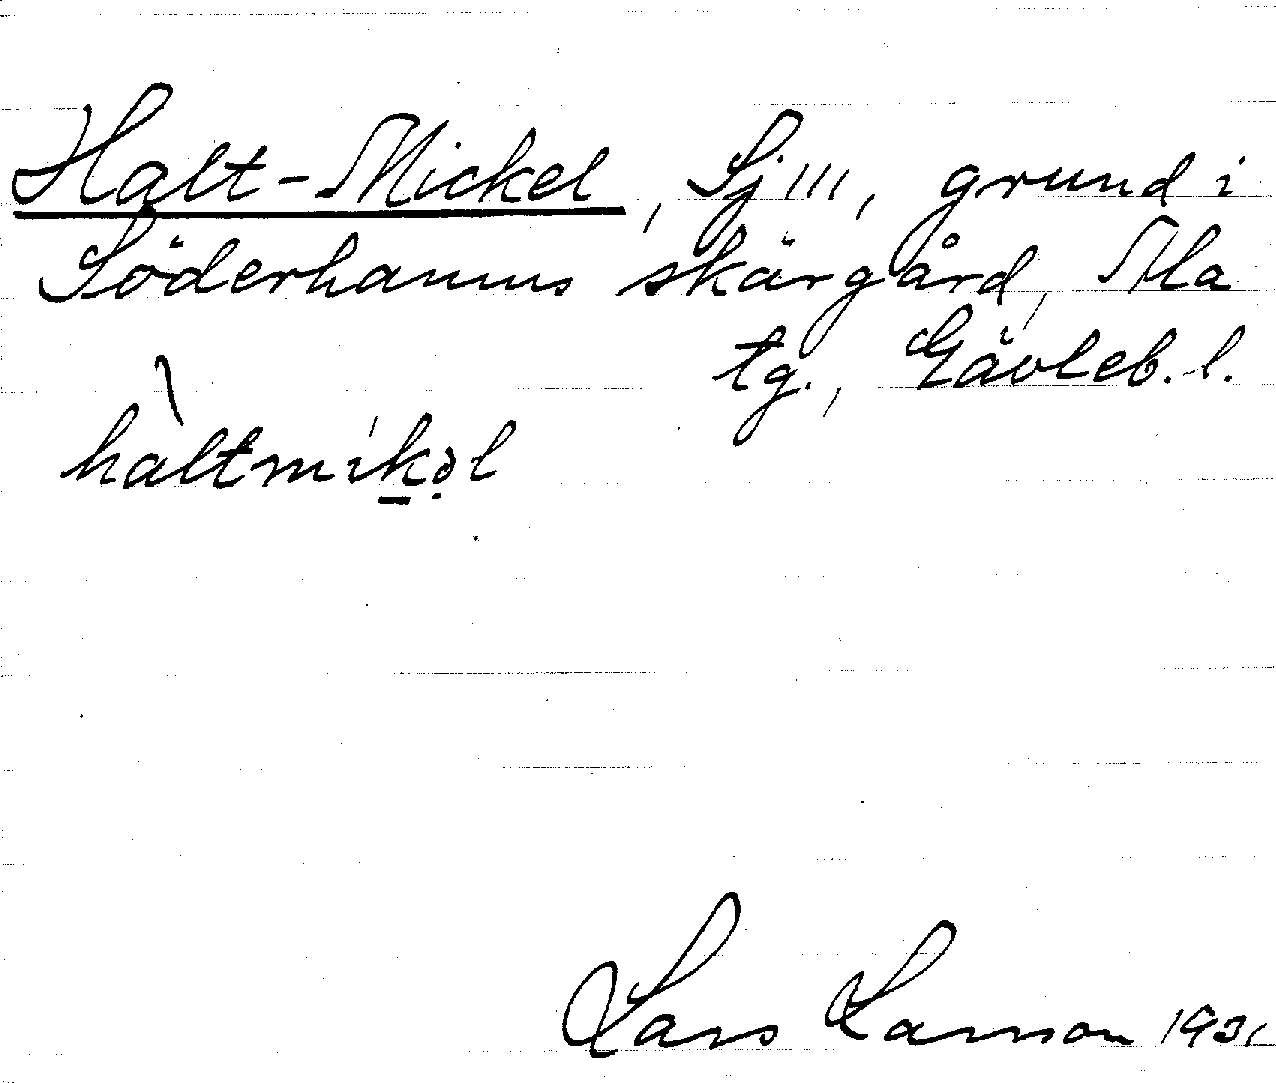 Halt-Mickel, Sj III, grund i
Söderhamns skärgård, Ala
tg., Gävleb. l.
hàltmikəl
Lars Larsson 1931